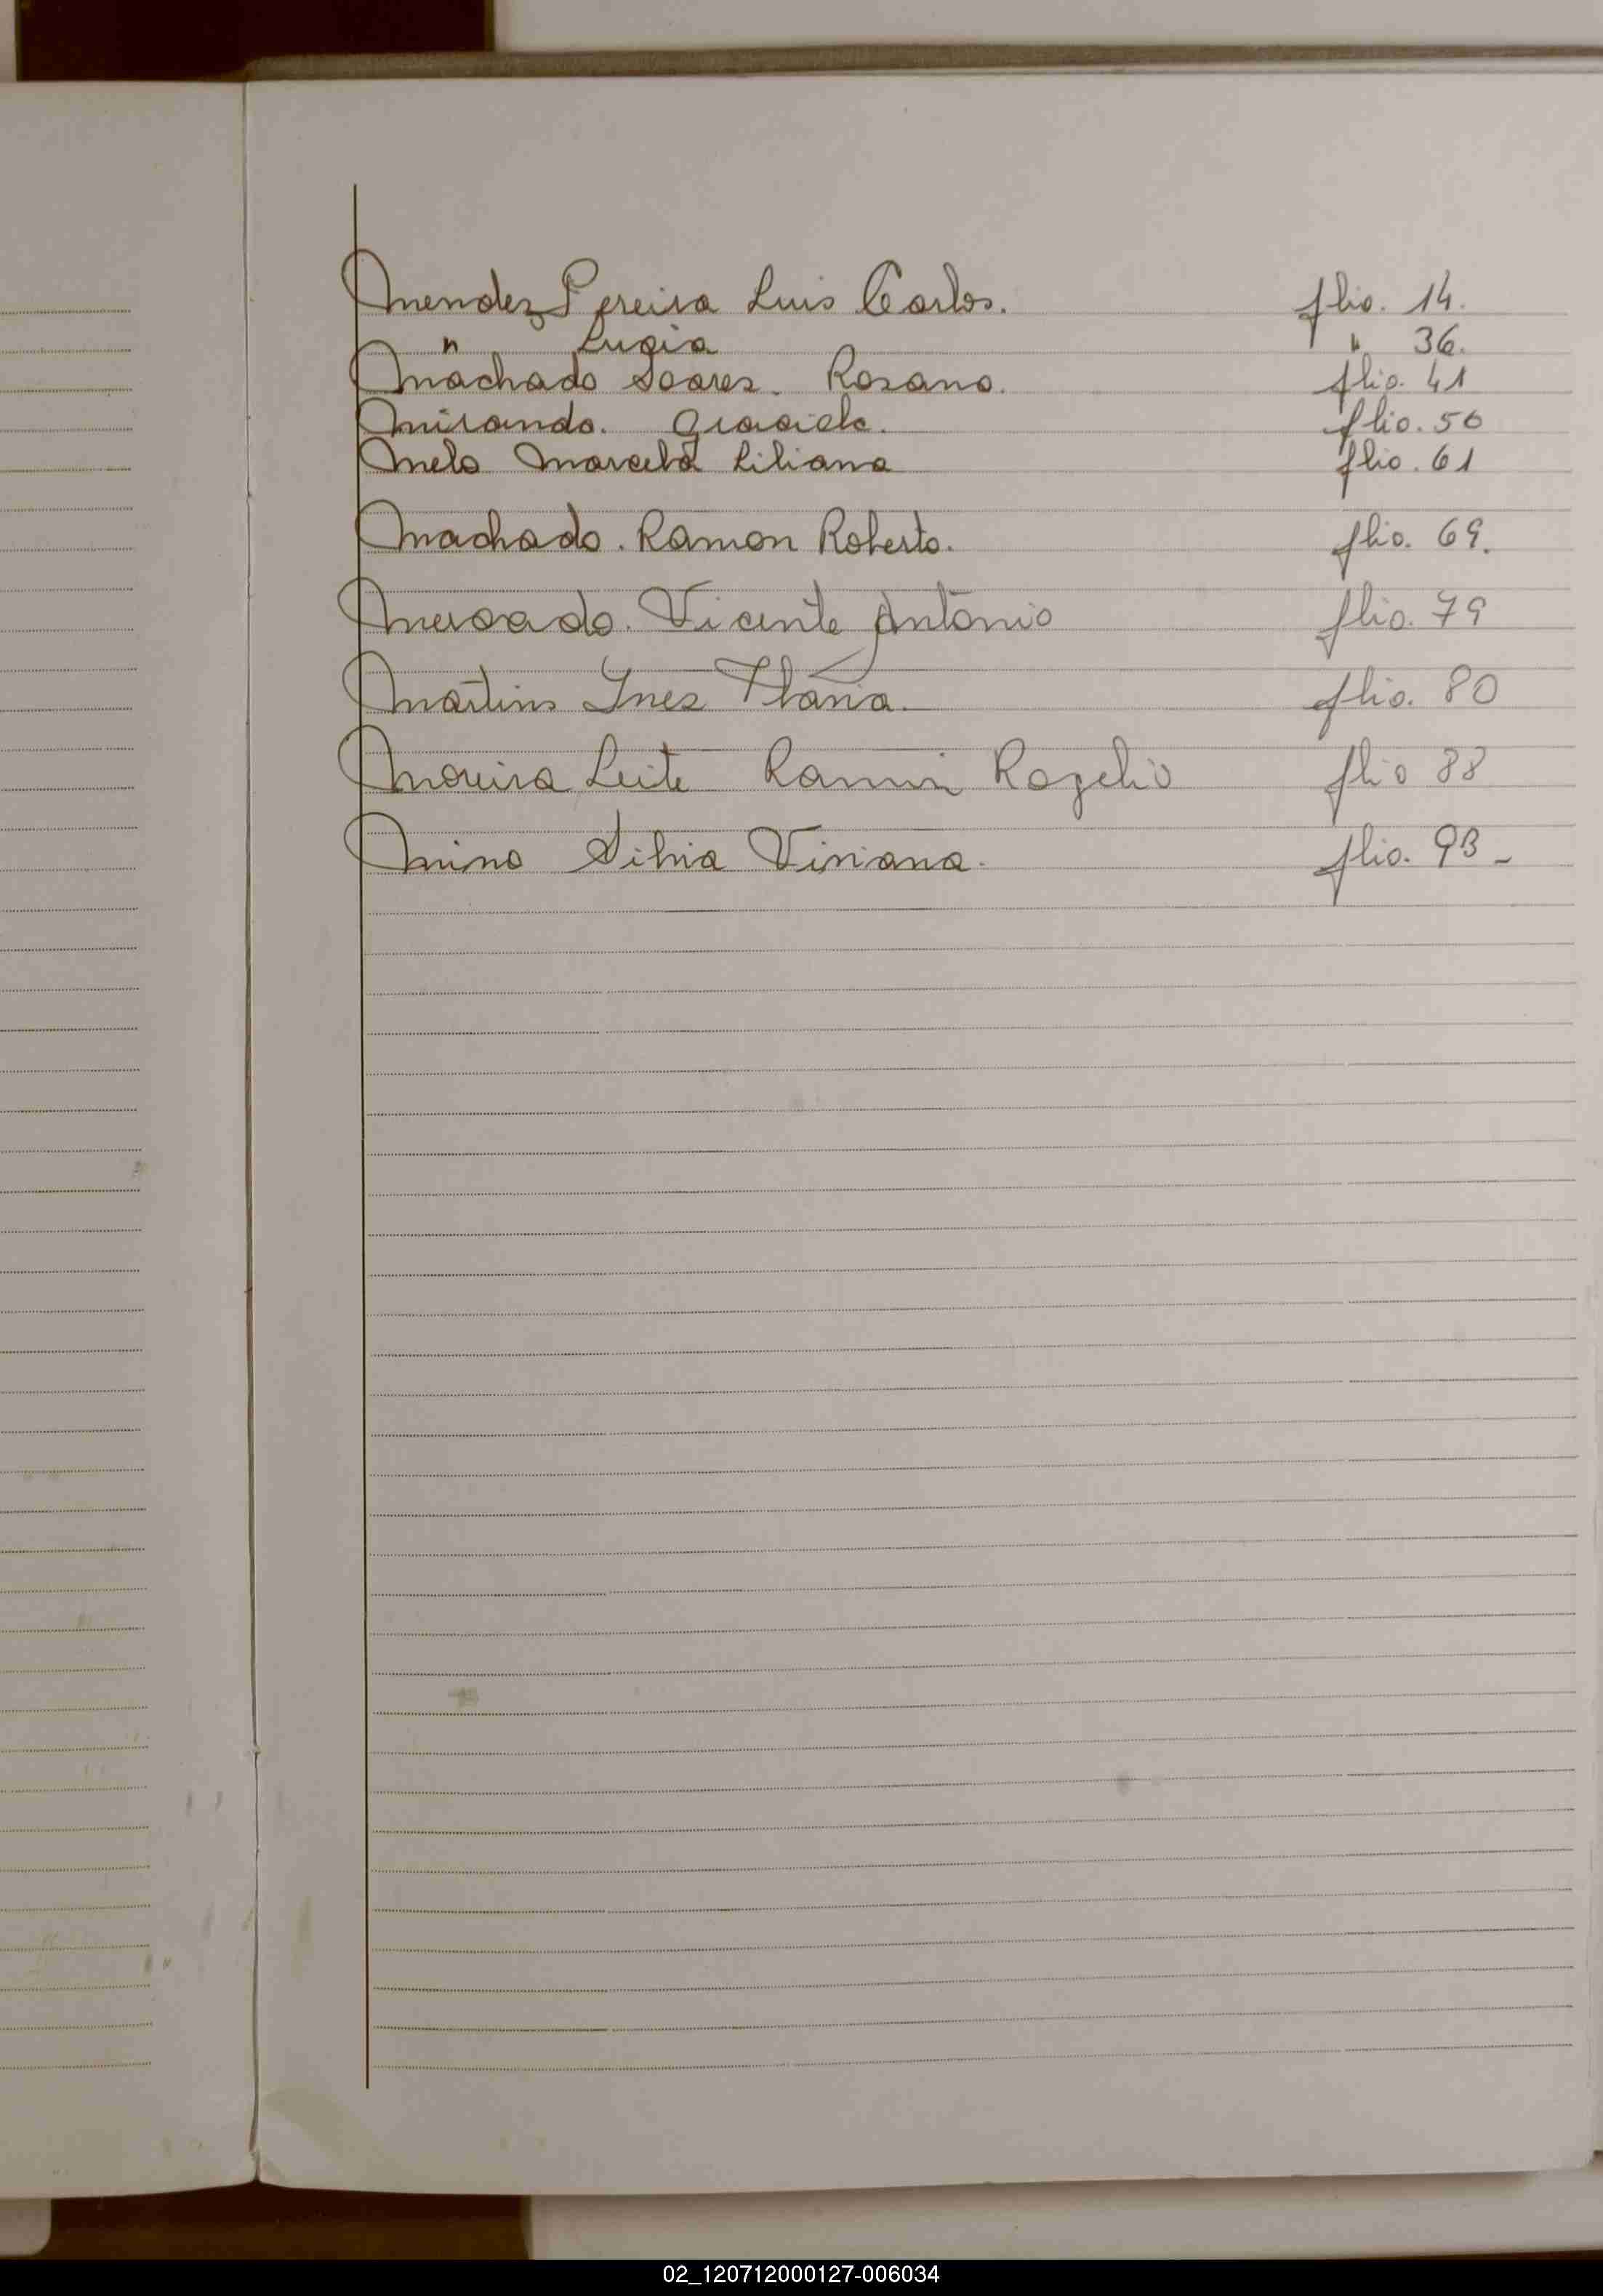 Mendez Pereira Luis Carlos. flio. 14.
" Lucia " 36.
Machado Soares. Rosana. flio. 41
Miranda. Graciela. flio. 50
Melo Marcela Liliana flio. 61
Machado. Ramon Roberto. flio. 69.
Mercado. Vicente Antonio flio. 79
Martins Ines flio. 80
Moreira Leite Ramon Rogelio flio 88
Mino Silvia Viviana. flio. 93-
02_120712000127-006034